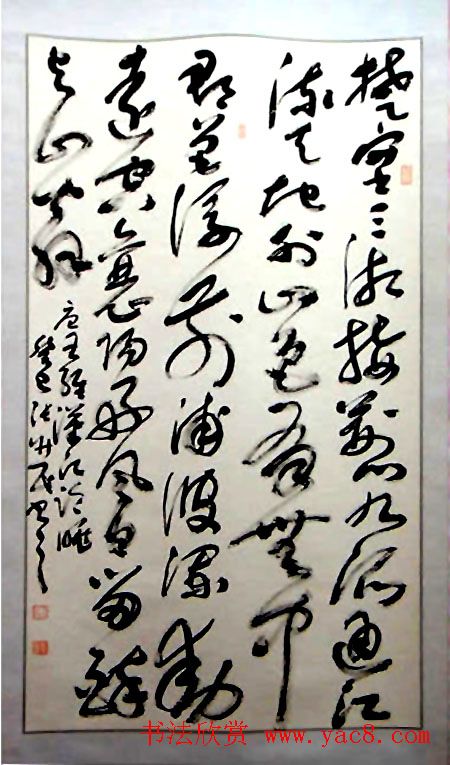 楚塞三湘接荆门九派通江
流天地外山色有無中
郡邑浮前浦波澜動
遠空襄陽好風日留醉
与山翁
唐王維漢江临眺
癸巳張
书法欣赏 www.yac8.com